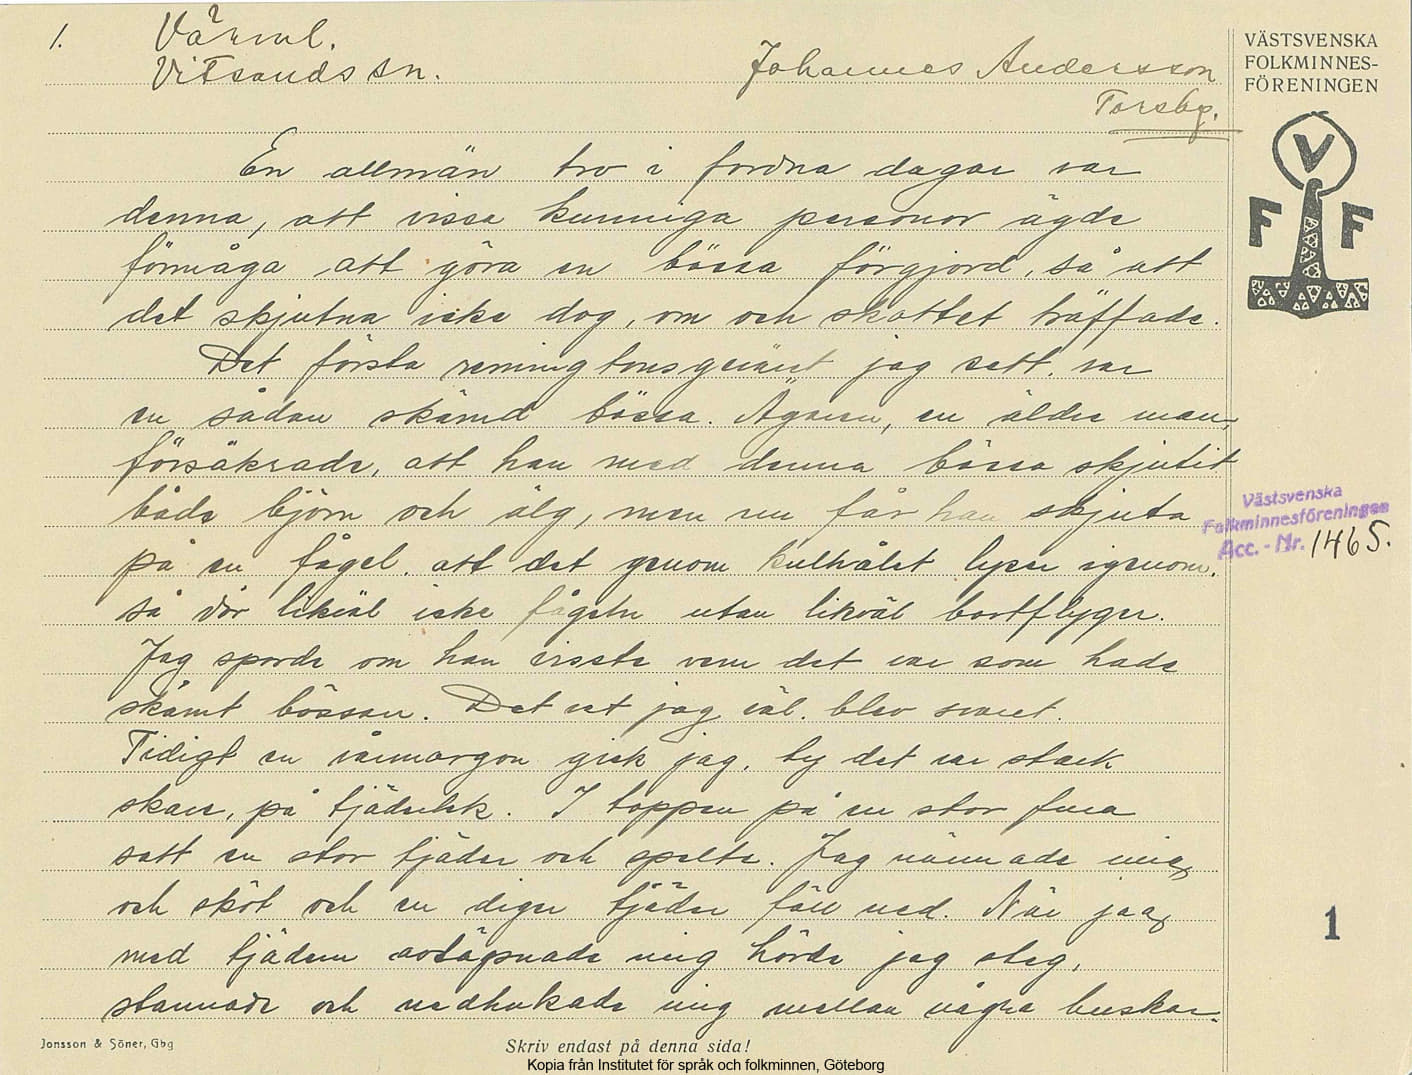 1.
Värml.
Vitsands sn.
Johannes Andersson
Torsby.
VÄSTSVENSKA
FOLKMINNES-
FÖRENINGEN
V
F F
En allmän tro i fordna dagar var
denna, att vissa kunniga personor ägde
förmåga att göra en bössa förgjord, så att
det skjutna icke dog, om och skottet träffade.
Det första remingtonsgeväret jag sett, var
en sådan skämd bössa. Ägaren, en äldre man,
försäkrade, att han med denna bössa skjutit
både björn och älg, men nu får han skjuta
på en fågel att det genom kulhålet lyser igenom,
så dör likväl icke fågeln utan likväl bortflyger.
Jag sporde om han visste vem det var som hade
skämt bössan. Det vet jag väl, blev svaret.
Tidigt en vårmorgon gick jag, ty det var stark
skare, på tjäderlek. I toppen på en stor fura
satt en stor tjäder och spelte. Jag närmade mig
och sköt och en diger tjäder föll ned. När jag
med tjädern avlägsnade mig hörde jag steg,
stannade och nedhukade mig mellan några buskar.
Västsvenska
Folkminnesföreningen
Acc.-Nr. 1465.
1
Jonsson & Söner, Gbg
Skriv endast på denna sida!
Kopia från Institutet för språk och folkminnen, Göteborg